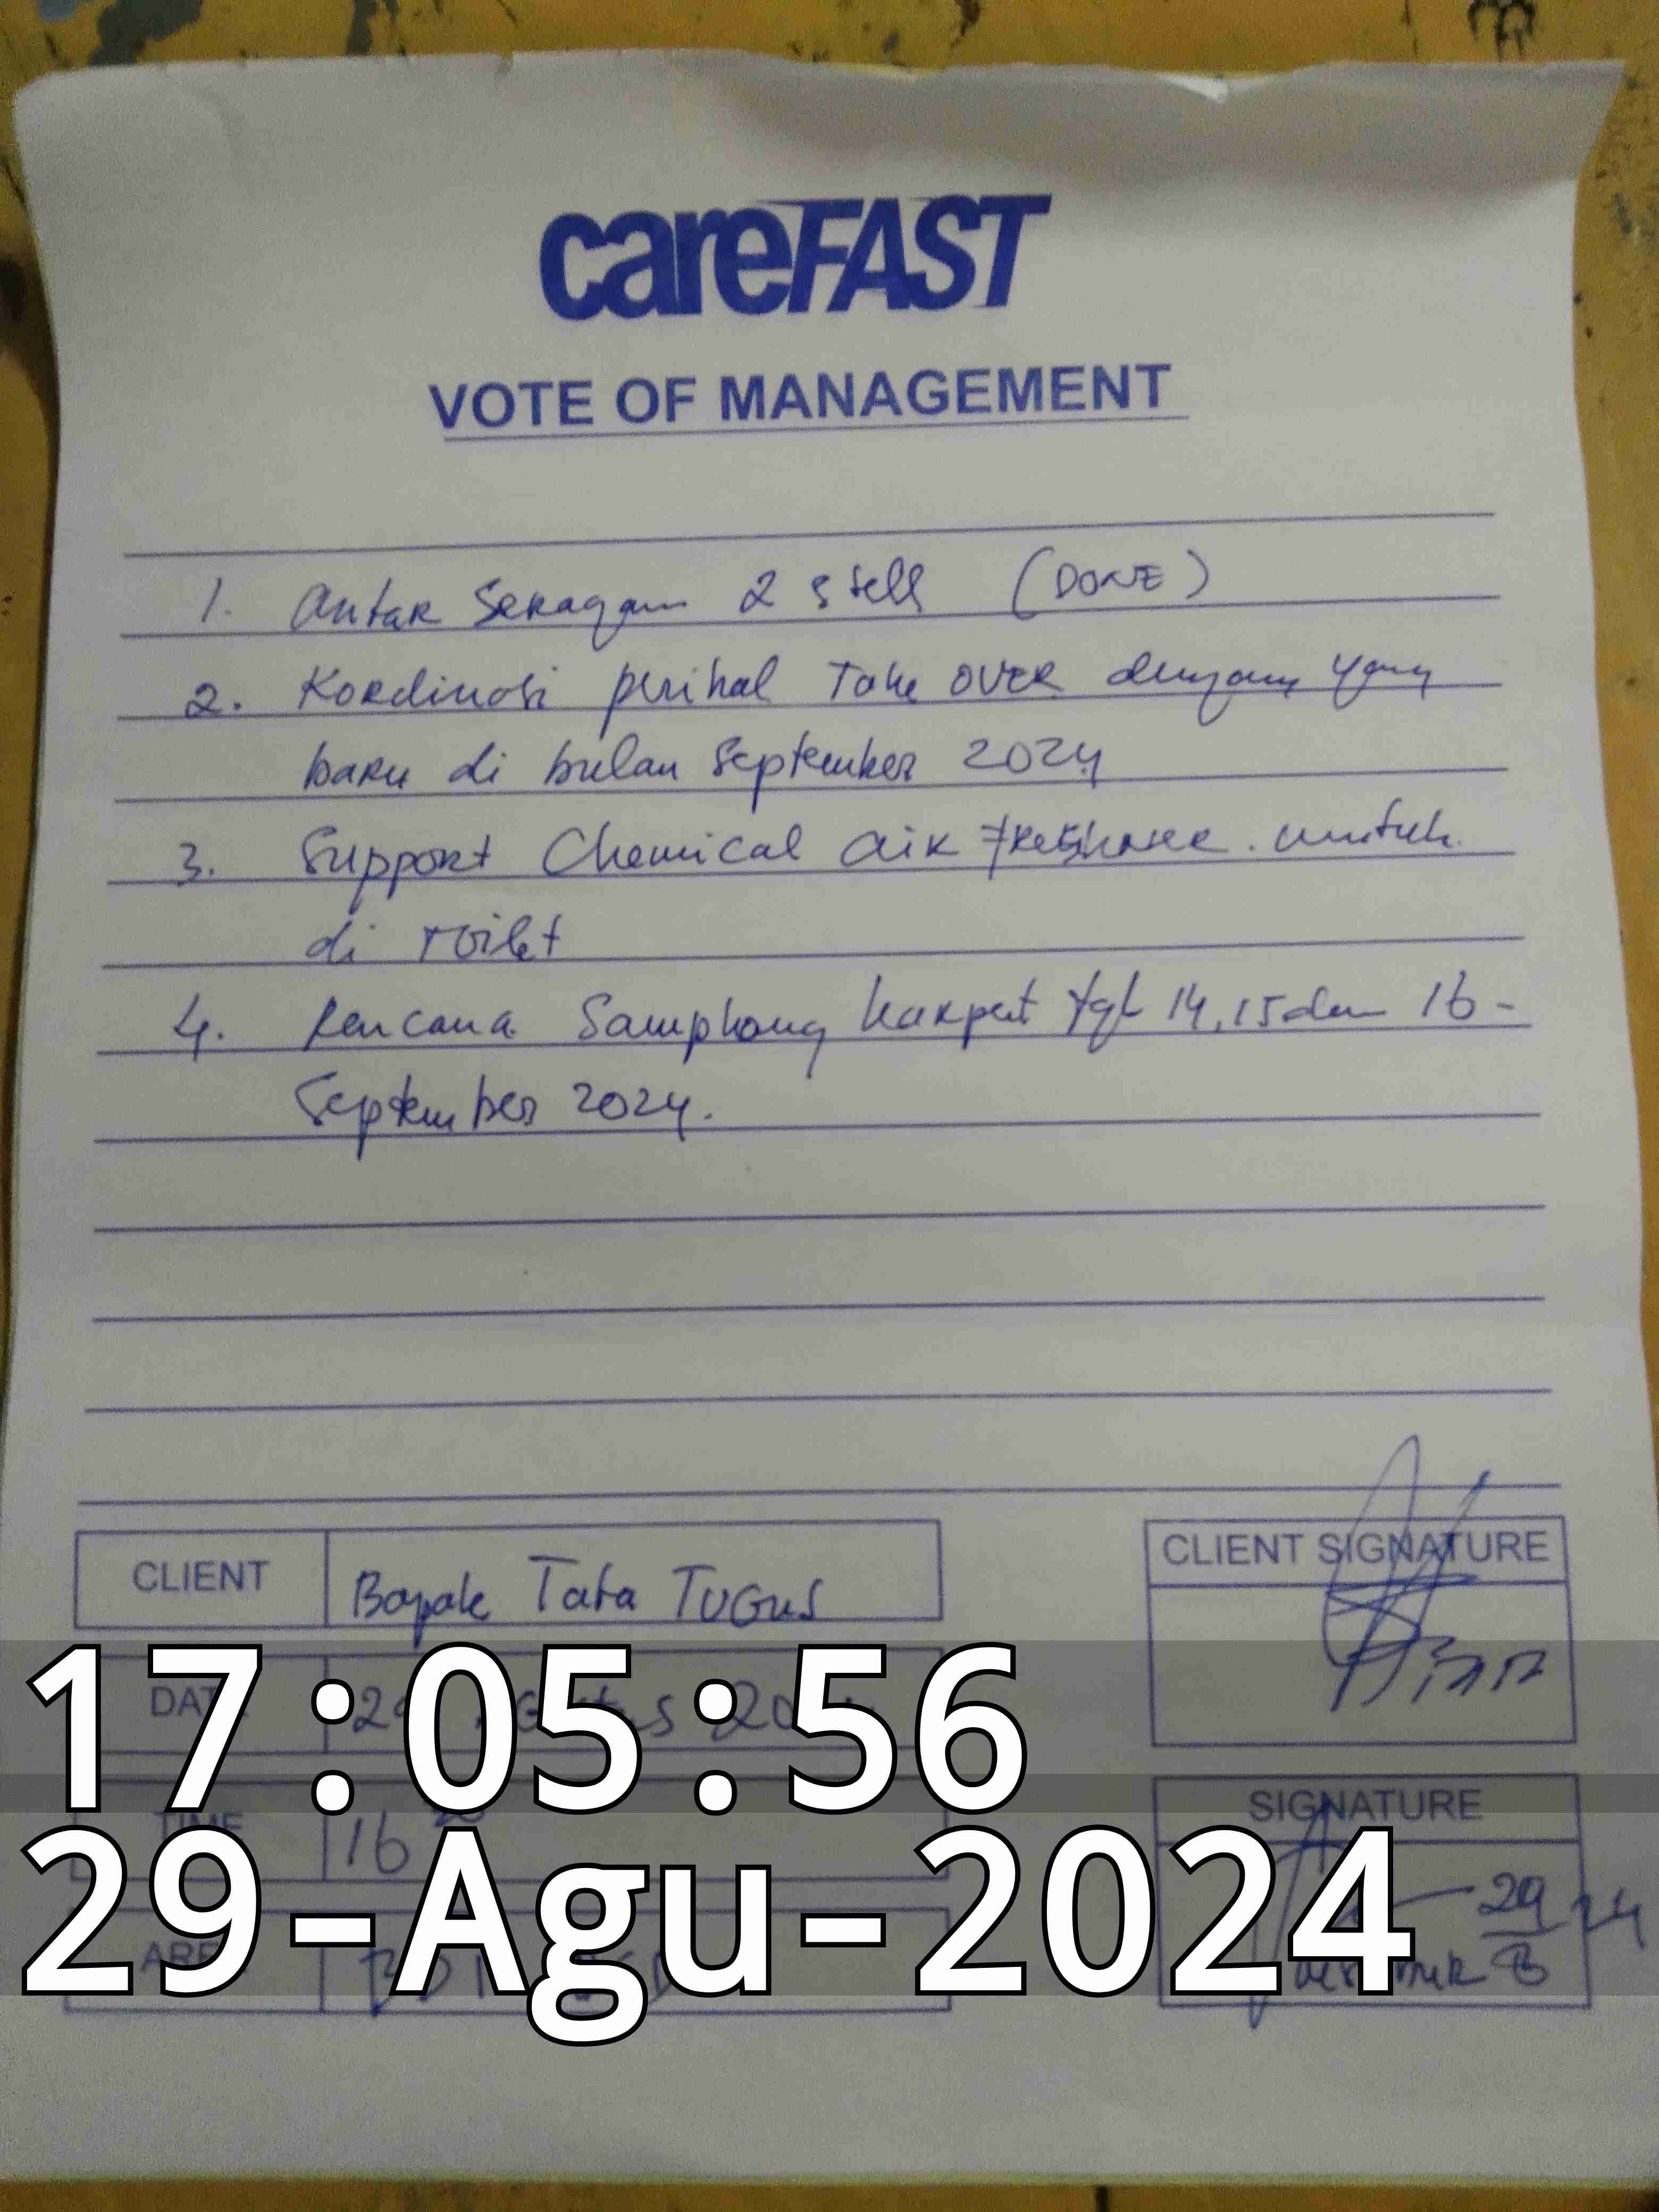 careFAST
VOTE OF MANAGEMENT
1. Antar Seragam 2 stell (DONE)
2. Kordinasi perihal Take over dengan yang
baru di bulan September 2024
3. Support Chemical air untuk
di toilet
4. Rencana Samphong karpet tgl 14, 15 dan 16 -
September 2024.
CLIENT Bapak Tata TUGUS
CLIENT SIGNATURE
17:05:56
TIME 16
SIGNATURE
29-Agu-2024
29